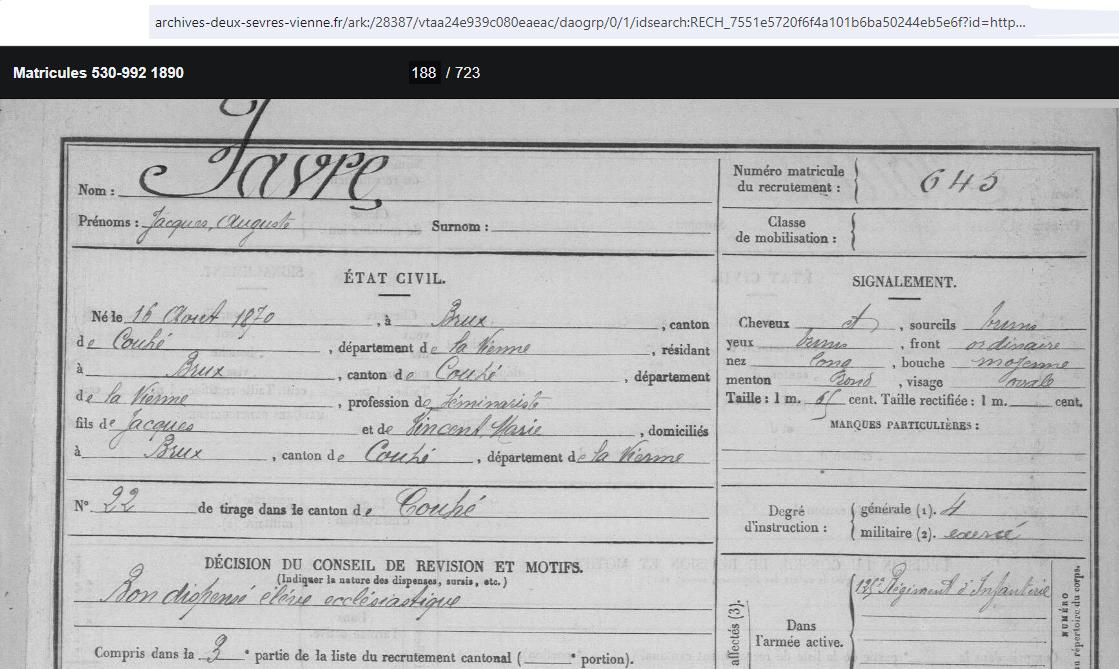 archives-deux-sevres-vienne.fr/ark:/28387/vtaa24e939c080eaeac/daogrp/0/1/idsearch:RECH_7551e5720f6f4a101b6ba50244eb5e6f?id=http...
Matricules 530-992 1890
188 / 723
Nom : Favre
Prénoms : Jacques, Auguste Surnom :
Numéro matricule du recrutement : 645
Classe de mobilisation :
ÉTAT CIVIL.
Né le 16 Aout 1870, à Brux, canton
de Couhé, département de la Vienne, résidant
à Brux, canton de Couhé, département
de la Vienne, profession de Séminariste
fils de Jacques et de Vincent Marie, domiciliés
à Brux, canton de Couhé, département de la Vienne
N° 22 de tirage dans le canton de Couhé
SIGNALEMENT.
Cheveux et, sourcils bruns
yeux bruns, front ordinaire
nez long, bouche moyenne
menton Rond, visage ovale
Taille : 1 m. cent. Taille rectifiée : 1 m. cent.
MARQUES PARTICULIÈRES :
Degré d'instruction : générale (1). 4
militaire (2). exercé
DÉCISION DU CONSEIL DE REVISION ET MOTIFS.
(Indiquer la nature des dispenses, sursis, etc.)
Bon dispensé élève ecclésiastique
Compris dans la 3e partie de la liste du recrutement cantonal ( e portion).
affectés (3).
Dans l'armée active.
125e Régiment d'Infanterie
NUMÉRO
au répertoire du corps.